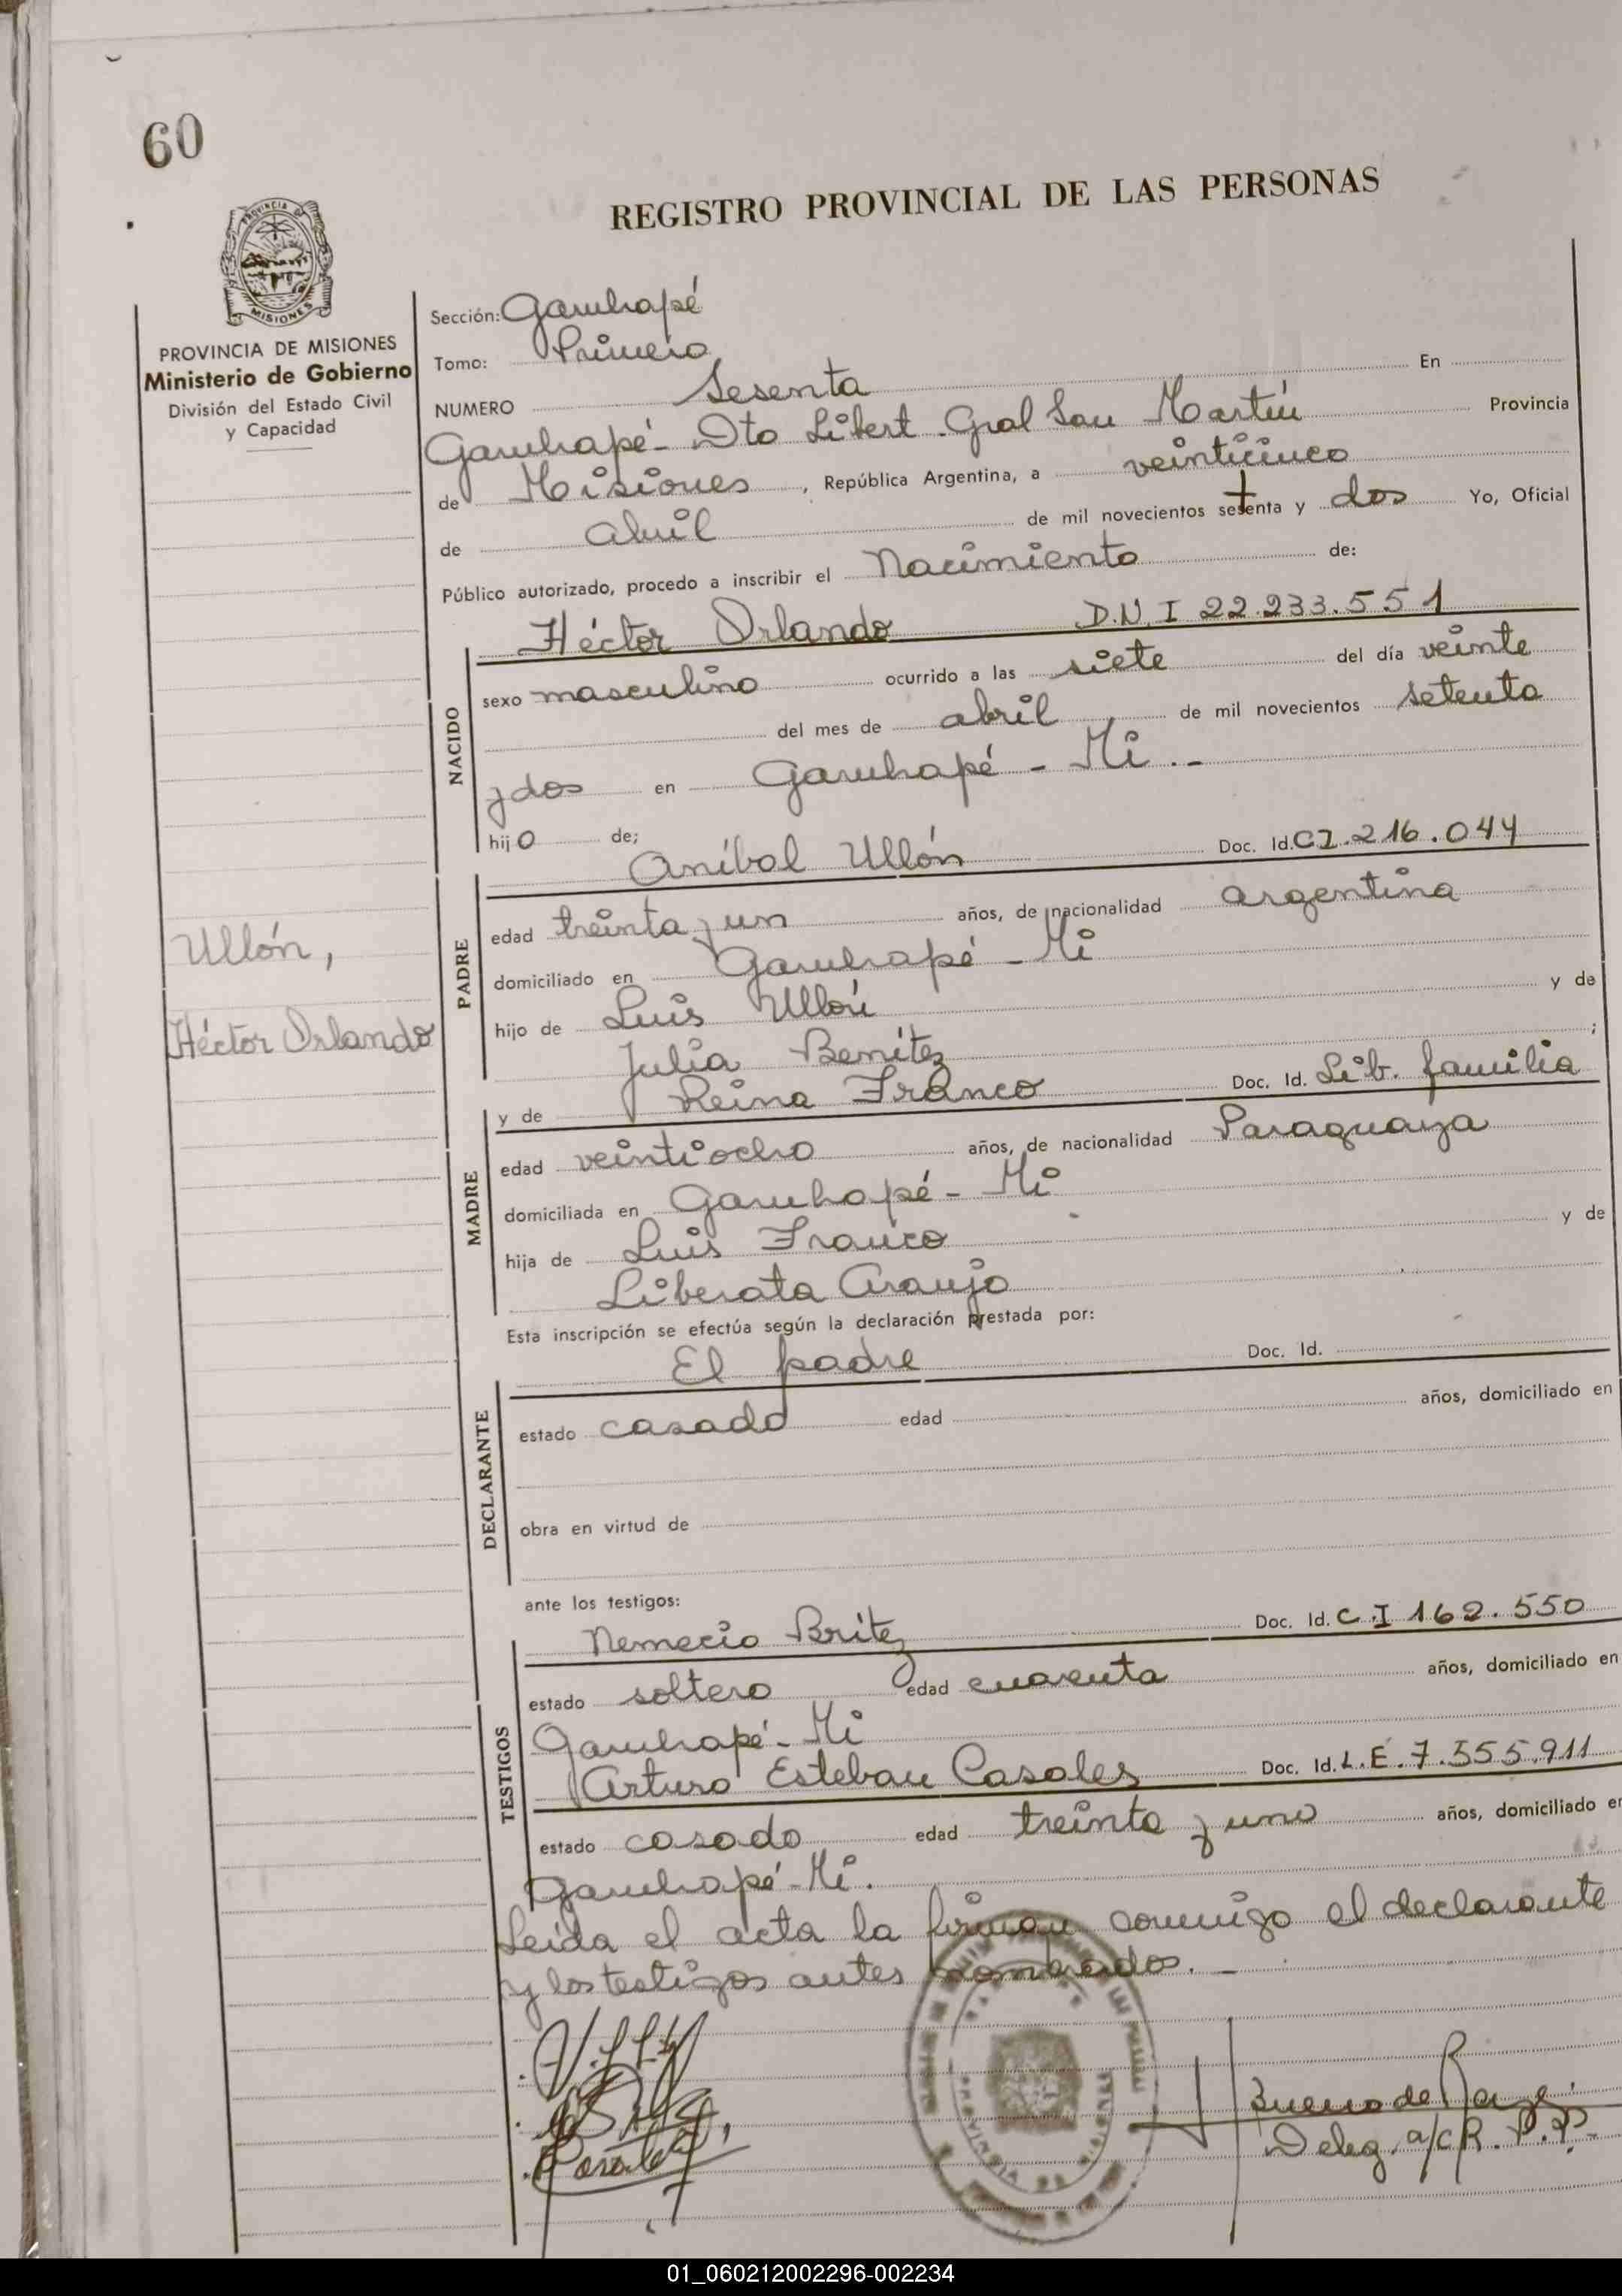 60
REGISTRO PROVINCIAL DE LAS PERSONAS
PROVINCIA DE
MISIONES
PROVINCIA DE MISIONES
Ministerio de Gobierno
División del Estado Civil
y Capacidad
Ullón,
Héctor Orlando
Sección: Garuhapé
Tomo: Primero
NUMERO Sesenta En
Garuhapé - Dto Libert. Gral San Martín Provincia
de Misiones, República Argentina, a veinticinco
de abril de mil novecientos setenta y dos Yo, Oficial
Público autorizado, procedo a inscribir el Nacimiento de:
Héctor Orlando D.N.I 22.233.551
NACIDO
sexo masculino ocurrido a las siete del día veinte
del mes de abril de mil novecientos setenta
y dos en Garuhapé - Mi.-
hijo de;
Aníbal Ullón Doc. Id. C.I. 216.044
PADRE
edad treinta y un años, de nacionalidad argentina
domiciliado en Garuhapé - Mi
hijo de Luis Ullón y de
Julia Benítez ;
y de Reina Franco Doc. Id. Lib. familia
MADRE
edad veintiocho años, de nacionalidad Paraguaya
domiciliada en Garuhapé - Mi
hija de Luis Franco y de
Liberata Araujo
Esta inscripción se efectúa según la declaración prestada por:
El padre Doc. Id.
DECLARANTE
estado casado edad años, domiciliado en
obra en virtud de
ante los testigos:
Nemecio Britez Doc. Id. C.I 162.550
TESTIGOS
estado soltero edad cuarenta años, domiciliado en
Garuhapé - Mi
Arturo Esteban Casales Doc. Id. L.E. 7.555.911
estado casado edad treinta y uno años, domiciliado en
Garuhapé - Mi.
Leída el acta la firman conmigo el declarante
y los testigos antes nombrados. -
Bueno de
Deleg. a/c R.P.P.
01_060212002296-002234